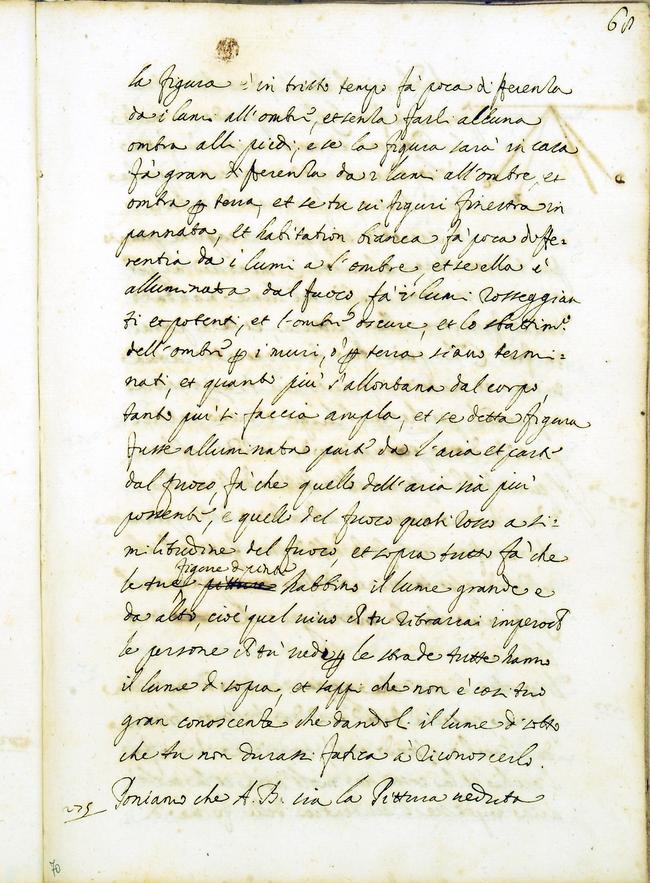 68
la figura è in tristo tempo fà poca differenza
da i lumi all'ombre, et senza farli alcuna
ombra alli piedi, e se la figura sarà in casa
fà gran differenza da i lumi all'ombre, et
ombra p terra, et se tu ui figuri finestra in
pannata, et habitation bianca fà poca diffe-
rentia da i lumi a l'ombre, et se ella è
alluminata dal fuoco, fà i lumi rosseggian
ti et potenti, et l'ombre oscure, et lo sbattim.to
dell'ombre p i muri, ò p terra siano termi-
nati, et quanto più s'allontana dal corpo,
tanto più si faccia ampla, et se detta figura
fusse alluminata parte da l'aria et parte
dal fuoco, fà che quello dell'aria sia più
possente, e quello del fuoco quasi rosso a si-
militudine del fuoco, et sopra tutto fà che
figure dipinte
le tue pitture habbino il lume grande e
da alto, cioè quel uiuo ch tu ritrarrai imperoch
le persone ch tù uedi p le strade tutte hanno
il lume di sopra, et sappi che non è cosi tuo
gran conoscente che dandoli il lume di sotto
che tu non durassi fatica à riconoscerlo.
Poniamo che A. B. sia la Pittura ueduta
70